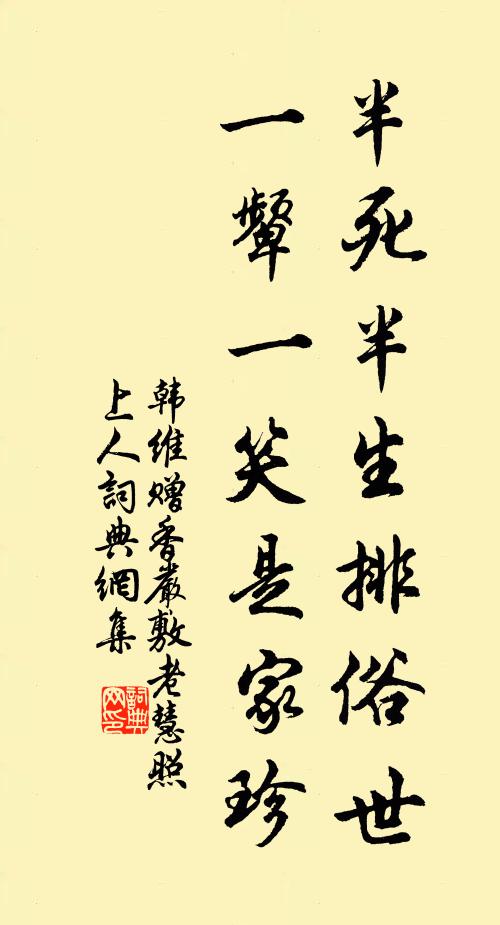 半死半生排俗世
一颦一笑是家珍
韩维赠香嚴敷老慧照
上人詞典網集
詞典网印